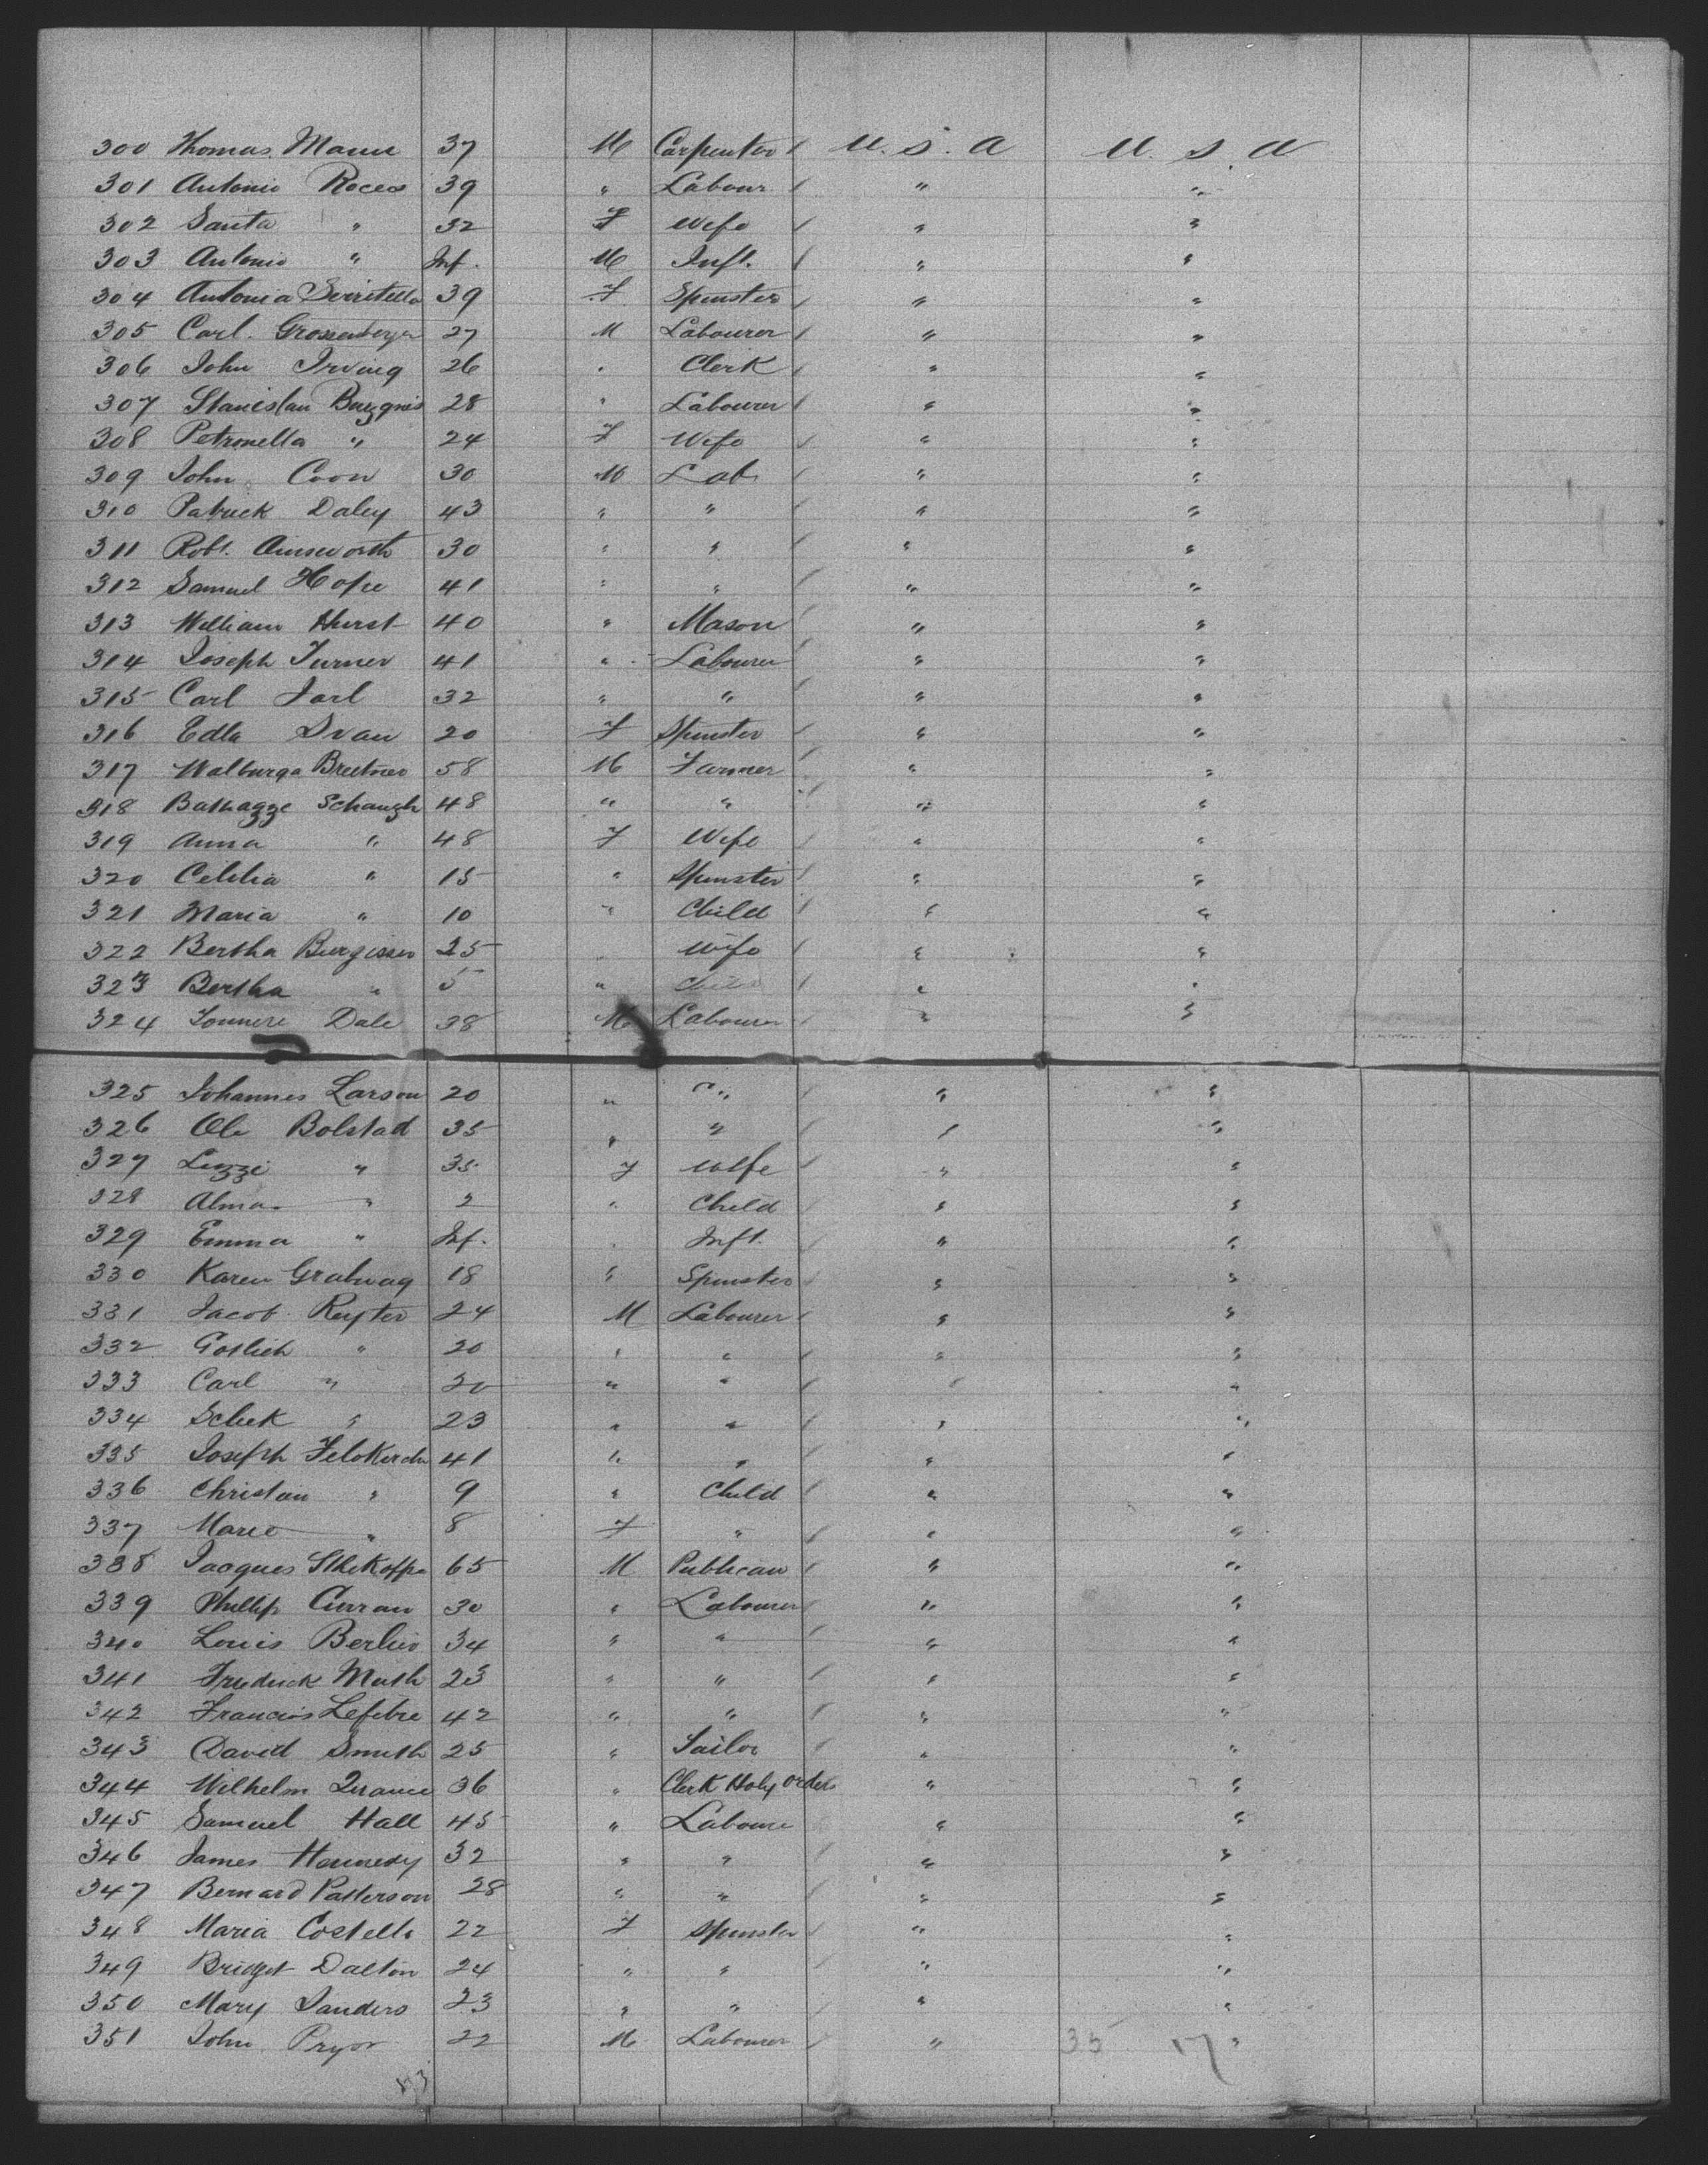 300 Thomas Mann 37 M Carpenter U.S.A U.S.A
301 Antonio Rocco 39 " Labour " "
302 Santa " 32 F Wife " "
303 Antonio " Inf. M Inft. " "
304 Antonia Serritella 39 F Spinster " "
305 Carl Grossenberger 27 M Labourer " "
306 John Irving 26 " Clerk " "
307 Stanislau 28 " Labourer " "
308 Petronella " 24 F Wife " "
309 John Coon 30 M Lab " "
310 Patrick Daley 43 " " " "
311 Robt. Ainsworth 30 " " " "
312 Samuel Hope 41 " " " "
313 William Hurst 40 " Mason " "
314 Joseph Turner 41 " Labourer " "
315 Carl Jarl 32 " " " "
316 Edla 20 F Spinster " "
317 Walburga 58 M Farmer " "
318 48 " " " "
319 Anna " 48 F Wife " "
320 Celelia " 15 " Spinster " "
321 Maria " 10 " Child " "
322 Bertha Burgisser 25 " Wife " "
323 Bertha " 5 " Child " "
324 Dale 38 M Labourer " "
325 Johannes Larson 20 " " " "
326 Ole Bolstad 35 " " " "
327 Lizzi " 35 F Wife " "
328 Alma " 2 " Child " "
329 Emma " Inf. " Inft. " "
330 Karen 18 " Spinster " "
331 Jacob Reyter 24 M Labourer " "
332 Gotlieb " 20 " " " "
333 Carl " 20 " " " "
334 " 23 " " " "
335 Joseph 41 " " " "
336 Christian " 9 " Child " "
337 Marie " 8 F " " "
338 Jacques 65 M Publican " "
339 Phillip Curran 30 " Labourer " "
340 Louis 34 " " " "
341 Frederick Muth 23 " " " "
342 Francois Lefebre 42 " " " "
343 David Smith 25 " Tailor " "
344 Wilhelm 36 " Clerk Holy Orders " "
345 Samuel Hall 45 " Laboure " "
346 James Hennedy 32 " " " "
347 Bernard Patterson 28 " " " "
348 Maria Costello 22 F Spinster " "
349 Bridget Dalton 24 " " " "
350 Mary Sanders 23 " " " "
351 John Pryor 22 M Labourer " 35 17 "